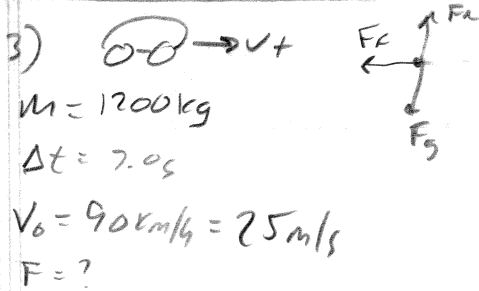 3) V+ Fn
Ff
m = 1200kg
Fg
Δt = 7.0s
V₀ = 90km/h = 25m/s
F = ?